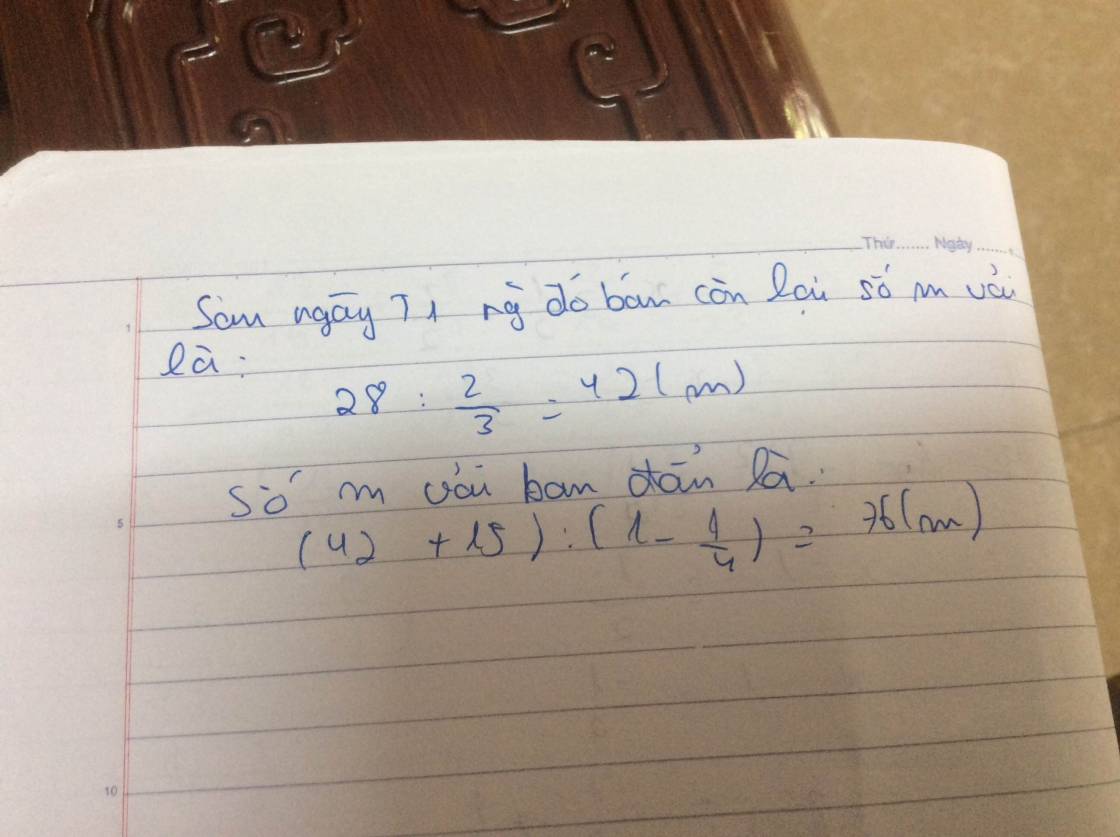 Thứ....... Ngày .......
Sau ngày T1 ng đó bán còn lại số m vải
1
là:
28 : 2/3 = 42 (m)
số m vải ban đầu là:
5
(42 + 15) : (1 - 1/4) = 76 (m)
10